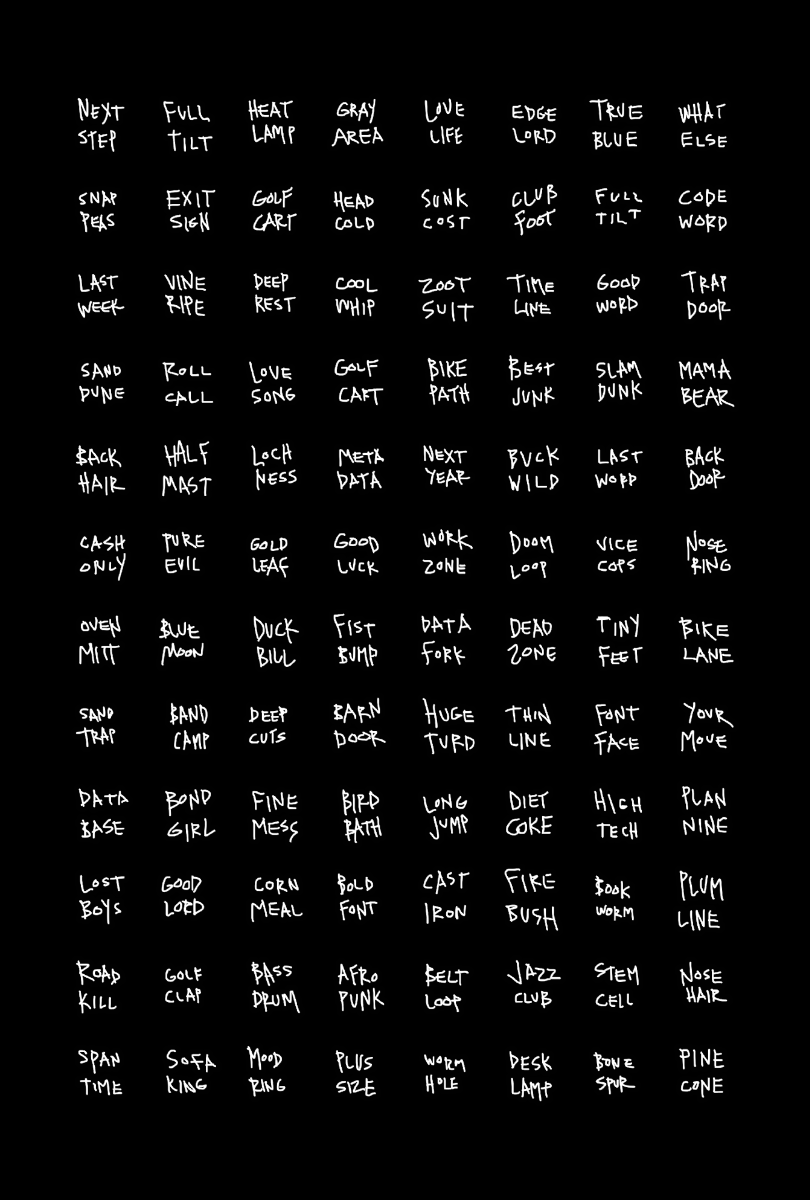 NEXT FULL HEAT GRAY LOVE EDGE TRUE WHAT
STEP TILT LAMP AREA LIFE LORD BLUE ELSE
SNAP EXIT GOLF HEAD SUNK CLUB FULL CODE
PEAS SIGN CART COLD COST FOOT TILT WORD
LAST VINE DEEP COOL ZOOT TIME GOOD TRAP
WEEK RIPE REST WHIP SUIT LINE WORD DOOR
SAND ROLL LOVE GOLF BIKE BEST SLAM MAMA
DUNE CALL SONG CART PATH JUNK DUNK BEAR
BACK HALF LOCH META NEXT BUCK LAST BACK
HAIR MAST NESS DATA YEAR WILD WORD DOOR
CASH PURE GOLD GOOD WORK DOOM VICE NOSE
ONLY EVIL LEAF LUCK ZONE LOOP COPS RING
OVEN BLUE DUCK FIST DATA DEAD TINY BIKE
MITT MOON BILL BUMP FORK ZONE FEET LANE
SAND BAND DEEP BARN HUGE THIN FONT YOUR
TRAP CAMP CUTS DOOR TURD LINE FACE MOVE
DATA BOND FINE BIRD LONG DIET HIGH PLAN
BASE GIRL MESS BATH JUMP COKE TECH NINE
LOST GOOD CORN BOLD CAST FIRE BOOK PLUM
BOYS LORD MEAL FONT IRON BUSH WORM LINE
ROAD GOLF BASS AFRO BELT JAZZ STEM NOSE
KILL CLAP DRUM PUNK LOOP CLUB CELL HAIR
SPAN SOFA MOOD PLUS WORM DESK BONE PINE
TIME KING RING SIZE HOLE LAMP SPUR CONE